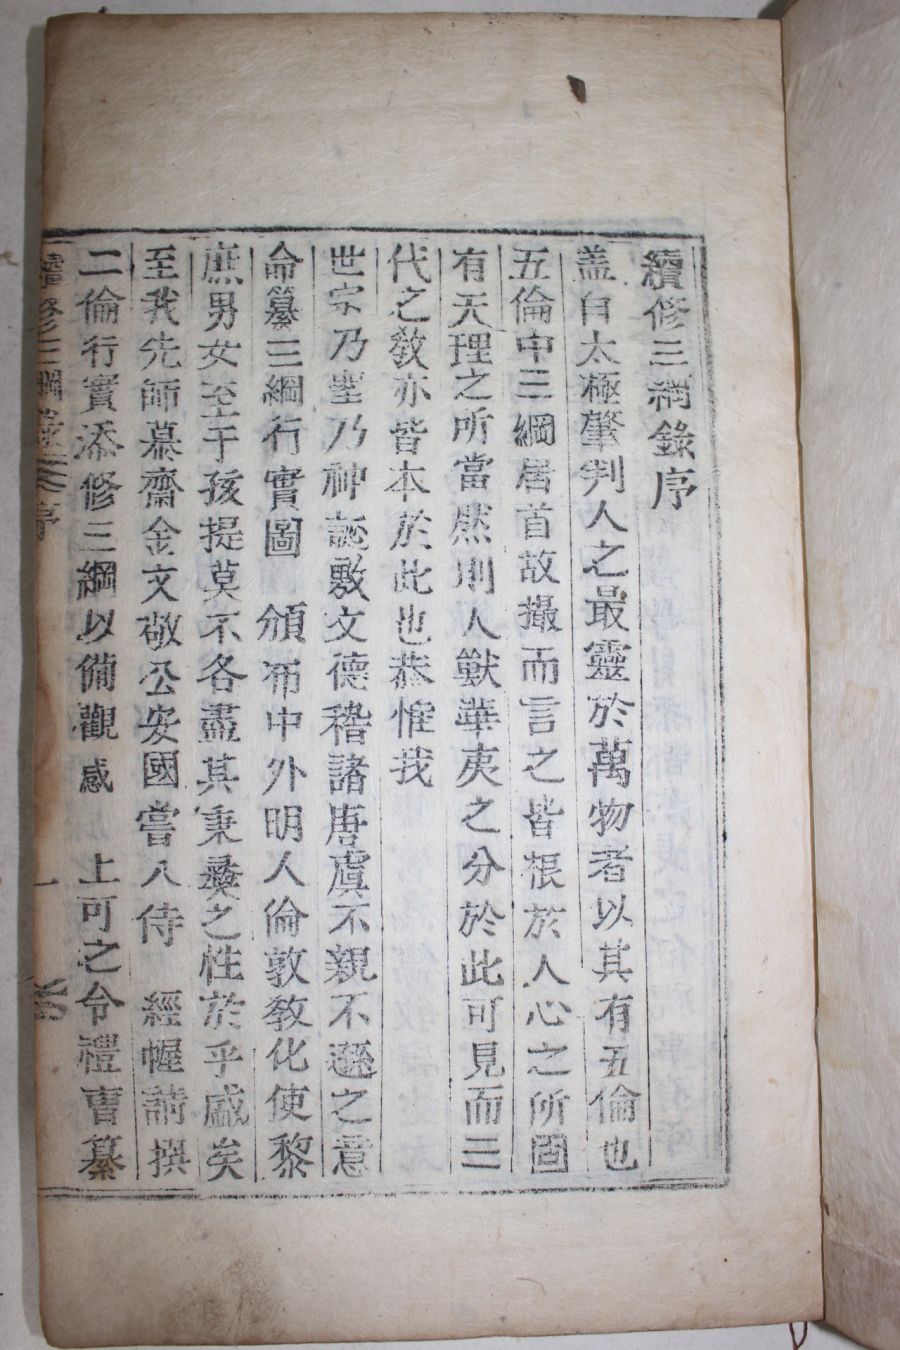 續修三綱錄序
盖自太極肇判人之最靈於萬物者以其有五倫也
五倫中三綱居首故撮而言之皆根於人心之所固
有天理之所當然則人獸華夷之分於此可見而三
代之敎亦皆本於此也恭惟我
世宗乃聖乃神誕敷文德稽諸唐虞不親不遜之意
命纂三綱行實圖 頒布中外明人倫敦敎化使黎
庶男女至于孩提莫不各盡其秉彜之性於乎盛矣
至我先師慕齋金文敬公安國嘗入侍 經幄請撰
二倫行實添修三綱以備觀感 上可之令禮曹纂
續修三綱錄 序 一